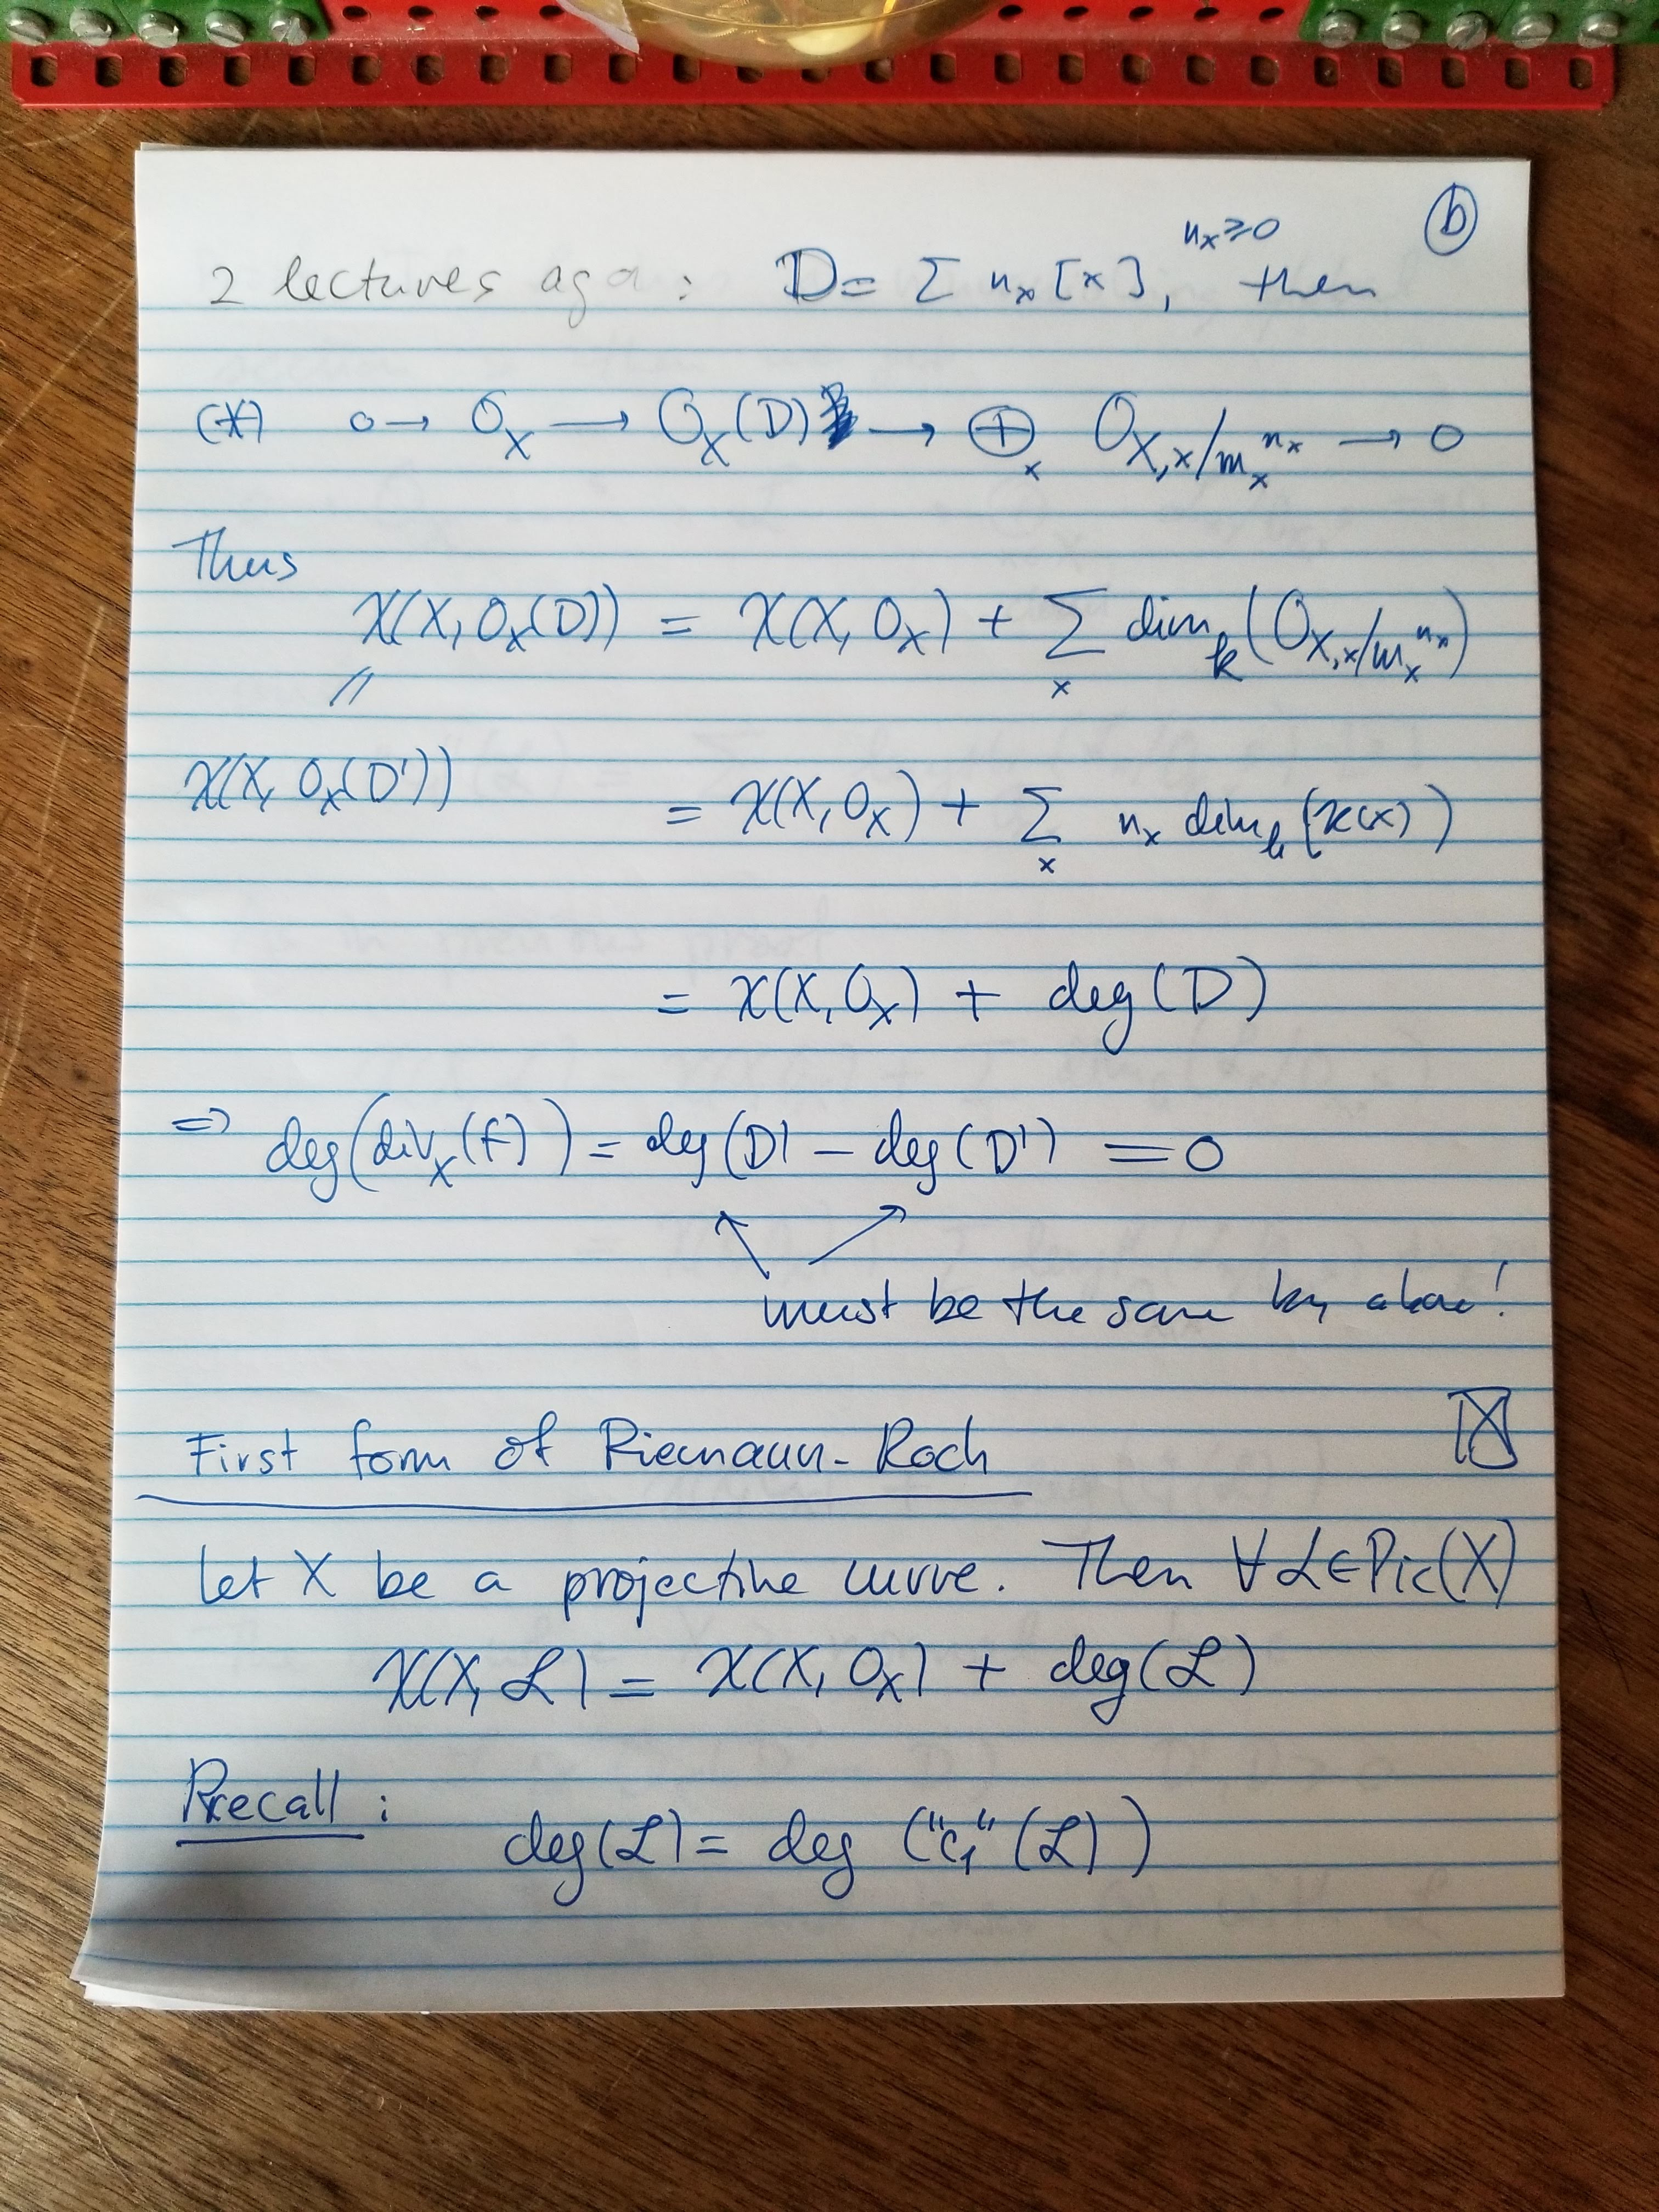 ⓑ
2 lectures ago: D = Σ n_x [x], n_x ≥ 0 then
(*) 0 → O_X → O_X(D) → ⊕_x O_{X,x}/m_x^{n_x} → 0
Thus
χ(X, O_X(D)) = χ(X, O_X) + Σ_x dim_k (O_{X,x}/m_x^{n_x})
//
χ(X, O_X(D')) = χ(X, O_X) + Σ_x n_x dim_k (κ(x))
= χ(X, O_X) + deg(D)
⇒ deg(div_X(f)) = deg(D) − deg(D') = 0
must be the same by above!
First form of Riemann-Roch
Let X be a projective curve. Then ∀ ℒ ∈ Pic(X)
χ(X, ℒ) = χ(X, O_X) + deg(ℒ)
Recall:
deg(ℒ) = deg ("c_1" (ℒ))